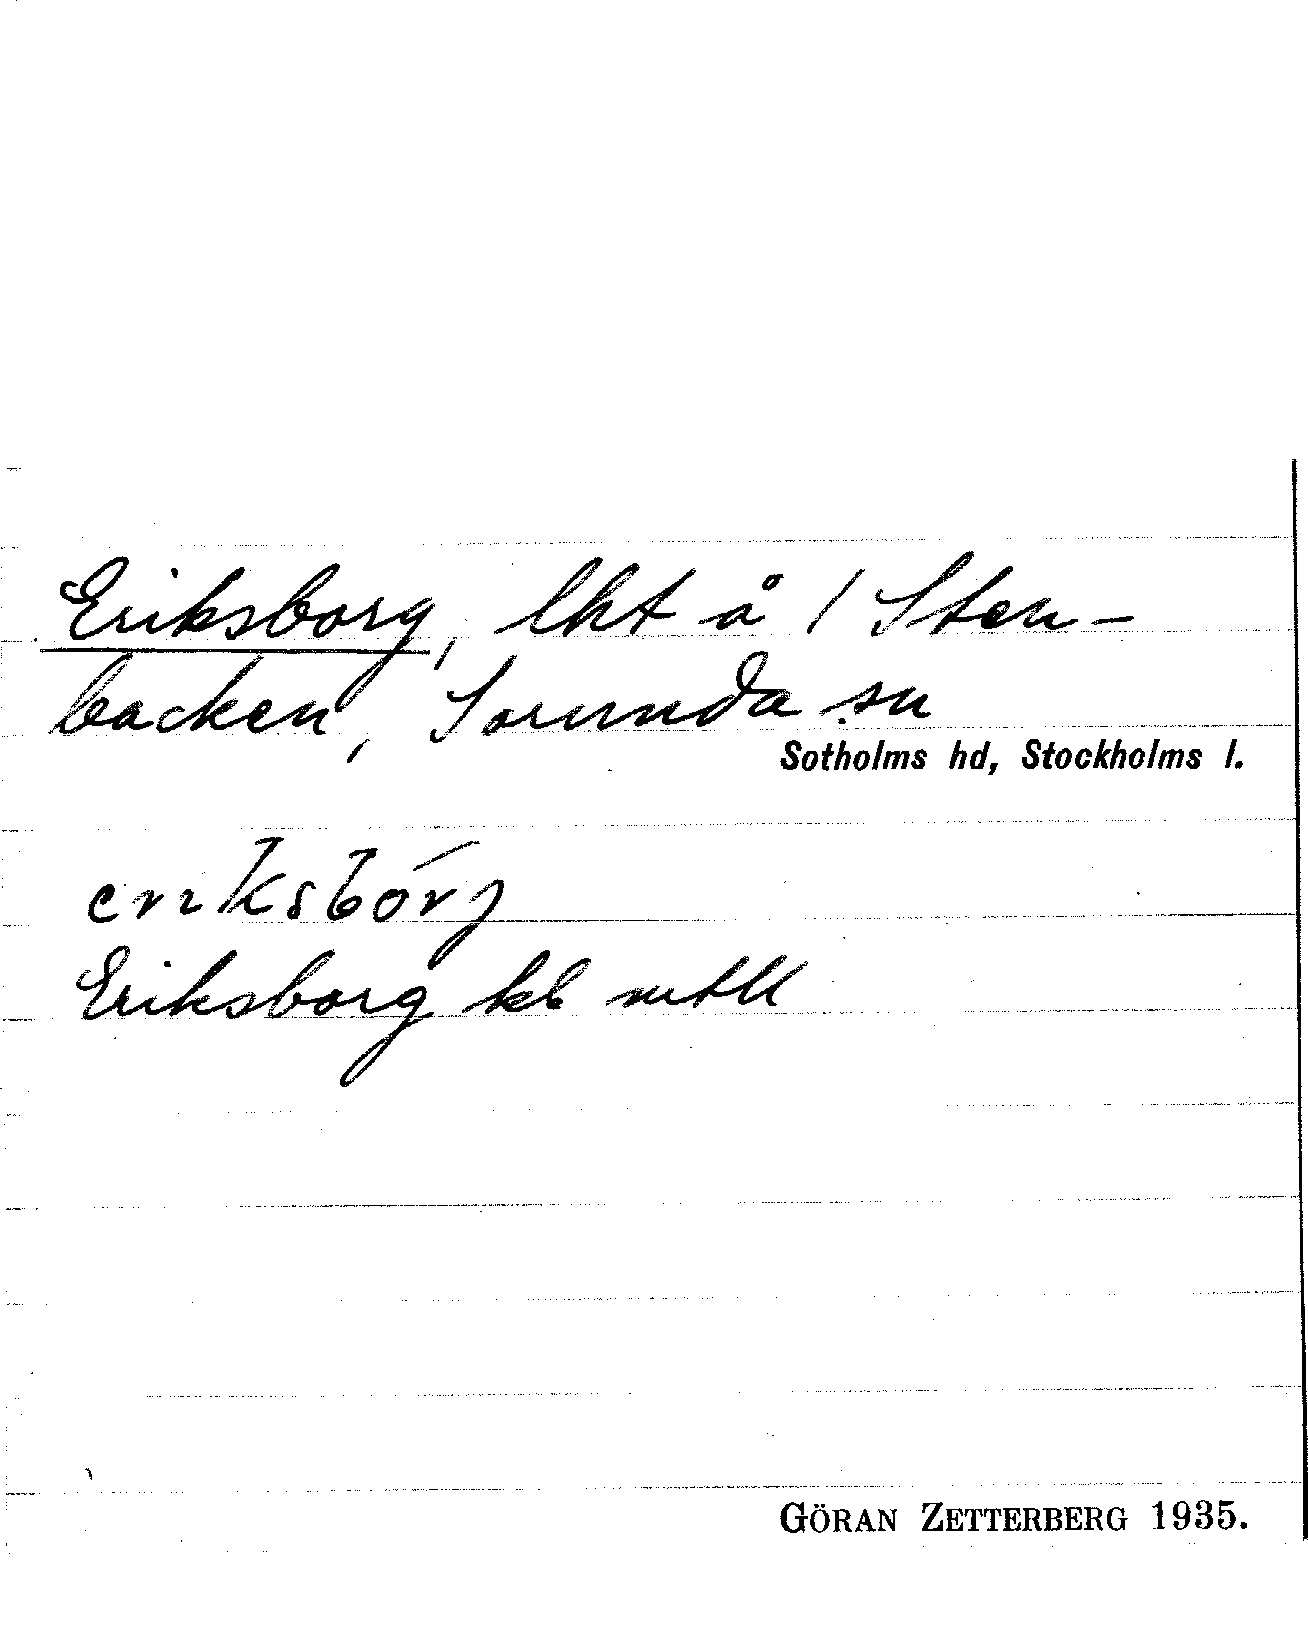 Eriksborg, lht å 1 Sten-
backen, Sorunda sn
Sotholms hd, Stockholms l.
Eriksborg kb mtll
GÖRAN ZETTERBERG 1935.